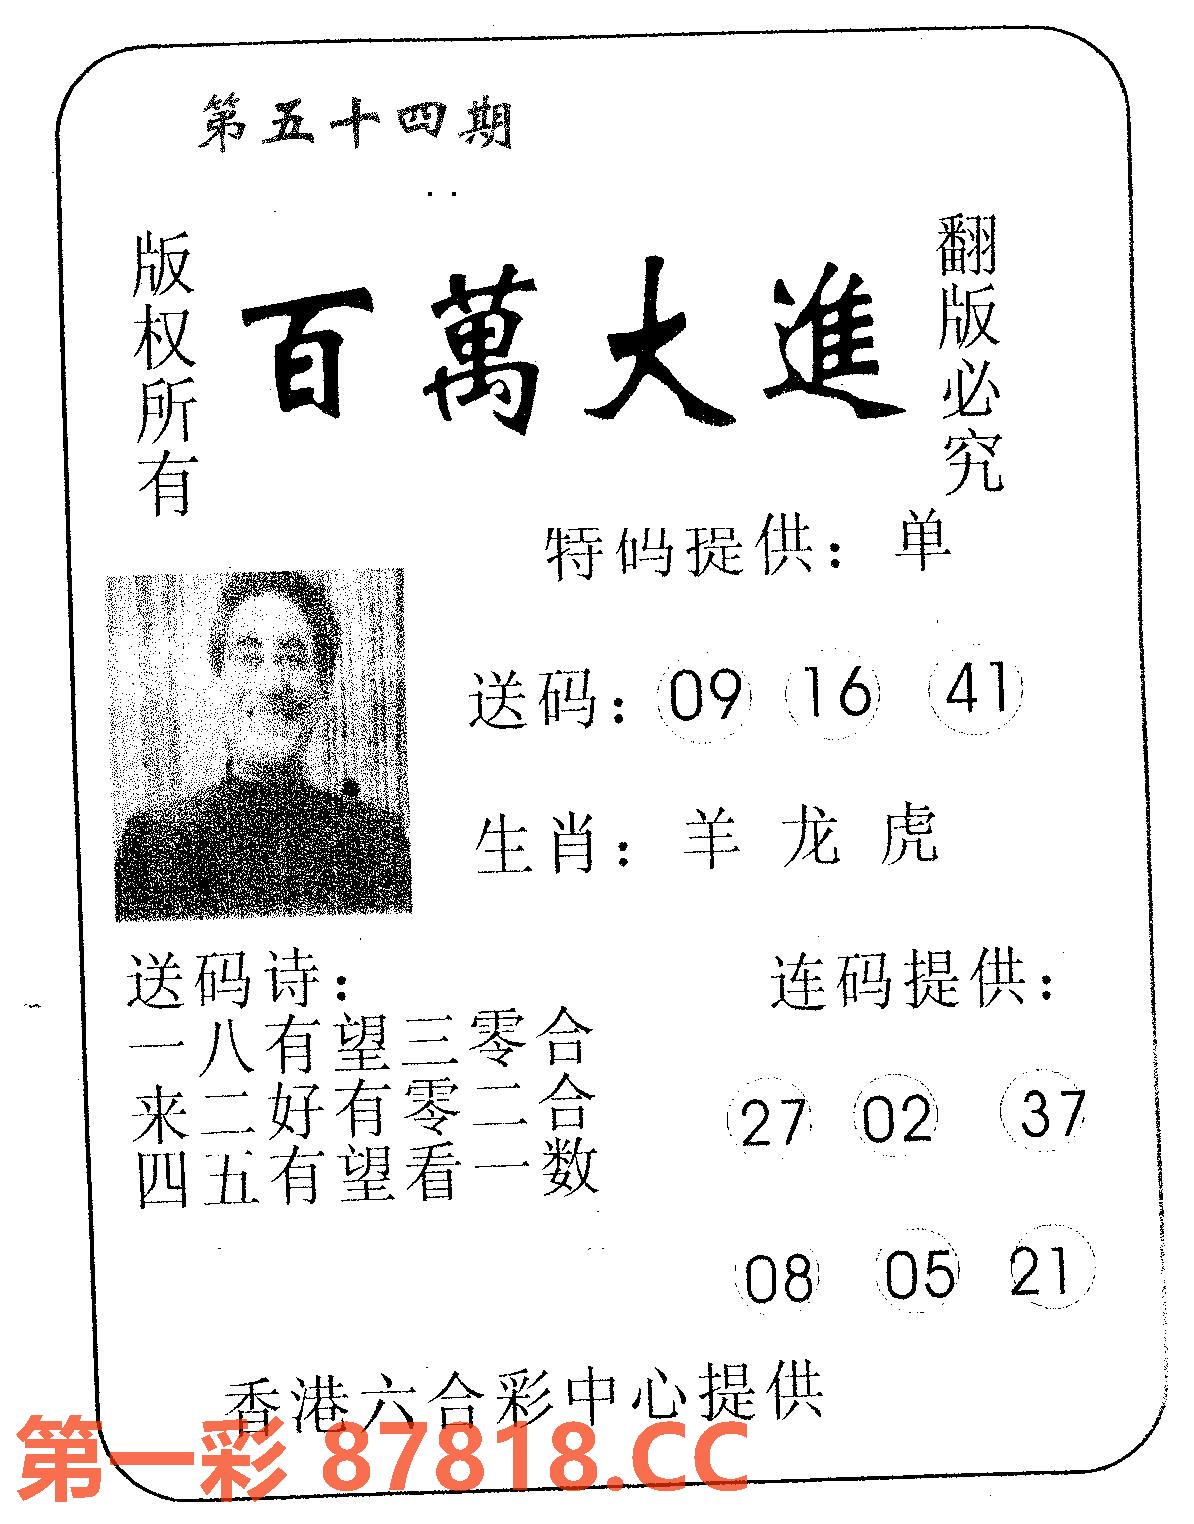 第五十四期
版权所有
百萬大進
翻版必究
特码提供：单
送码：09 16 41
生肖：羊 龙 虎
送码诗：
一八有望三零合
来二好有零二合
四五有望看一数
连码提供：
27 02 37
08 05 21
香港六合彩中心提供
第一彩 87818.CC